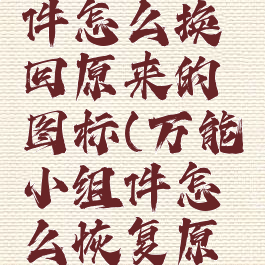 件怎么换
回原来的
图标(万能
小组件怎
么恢复原